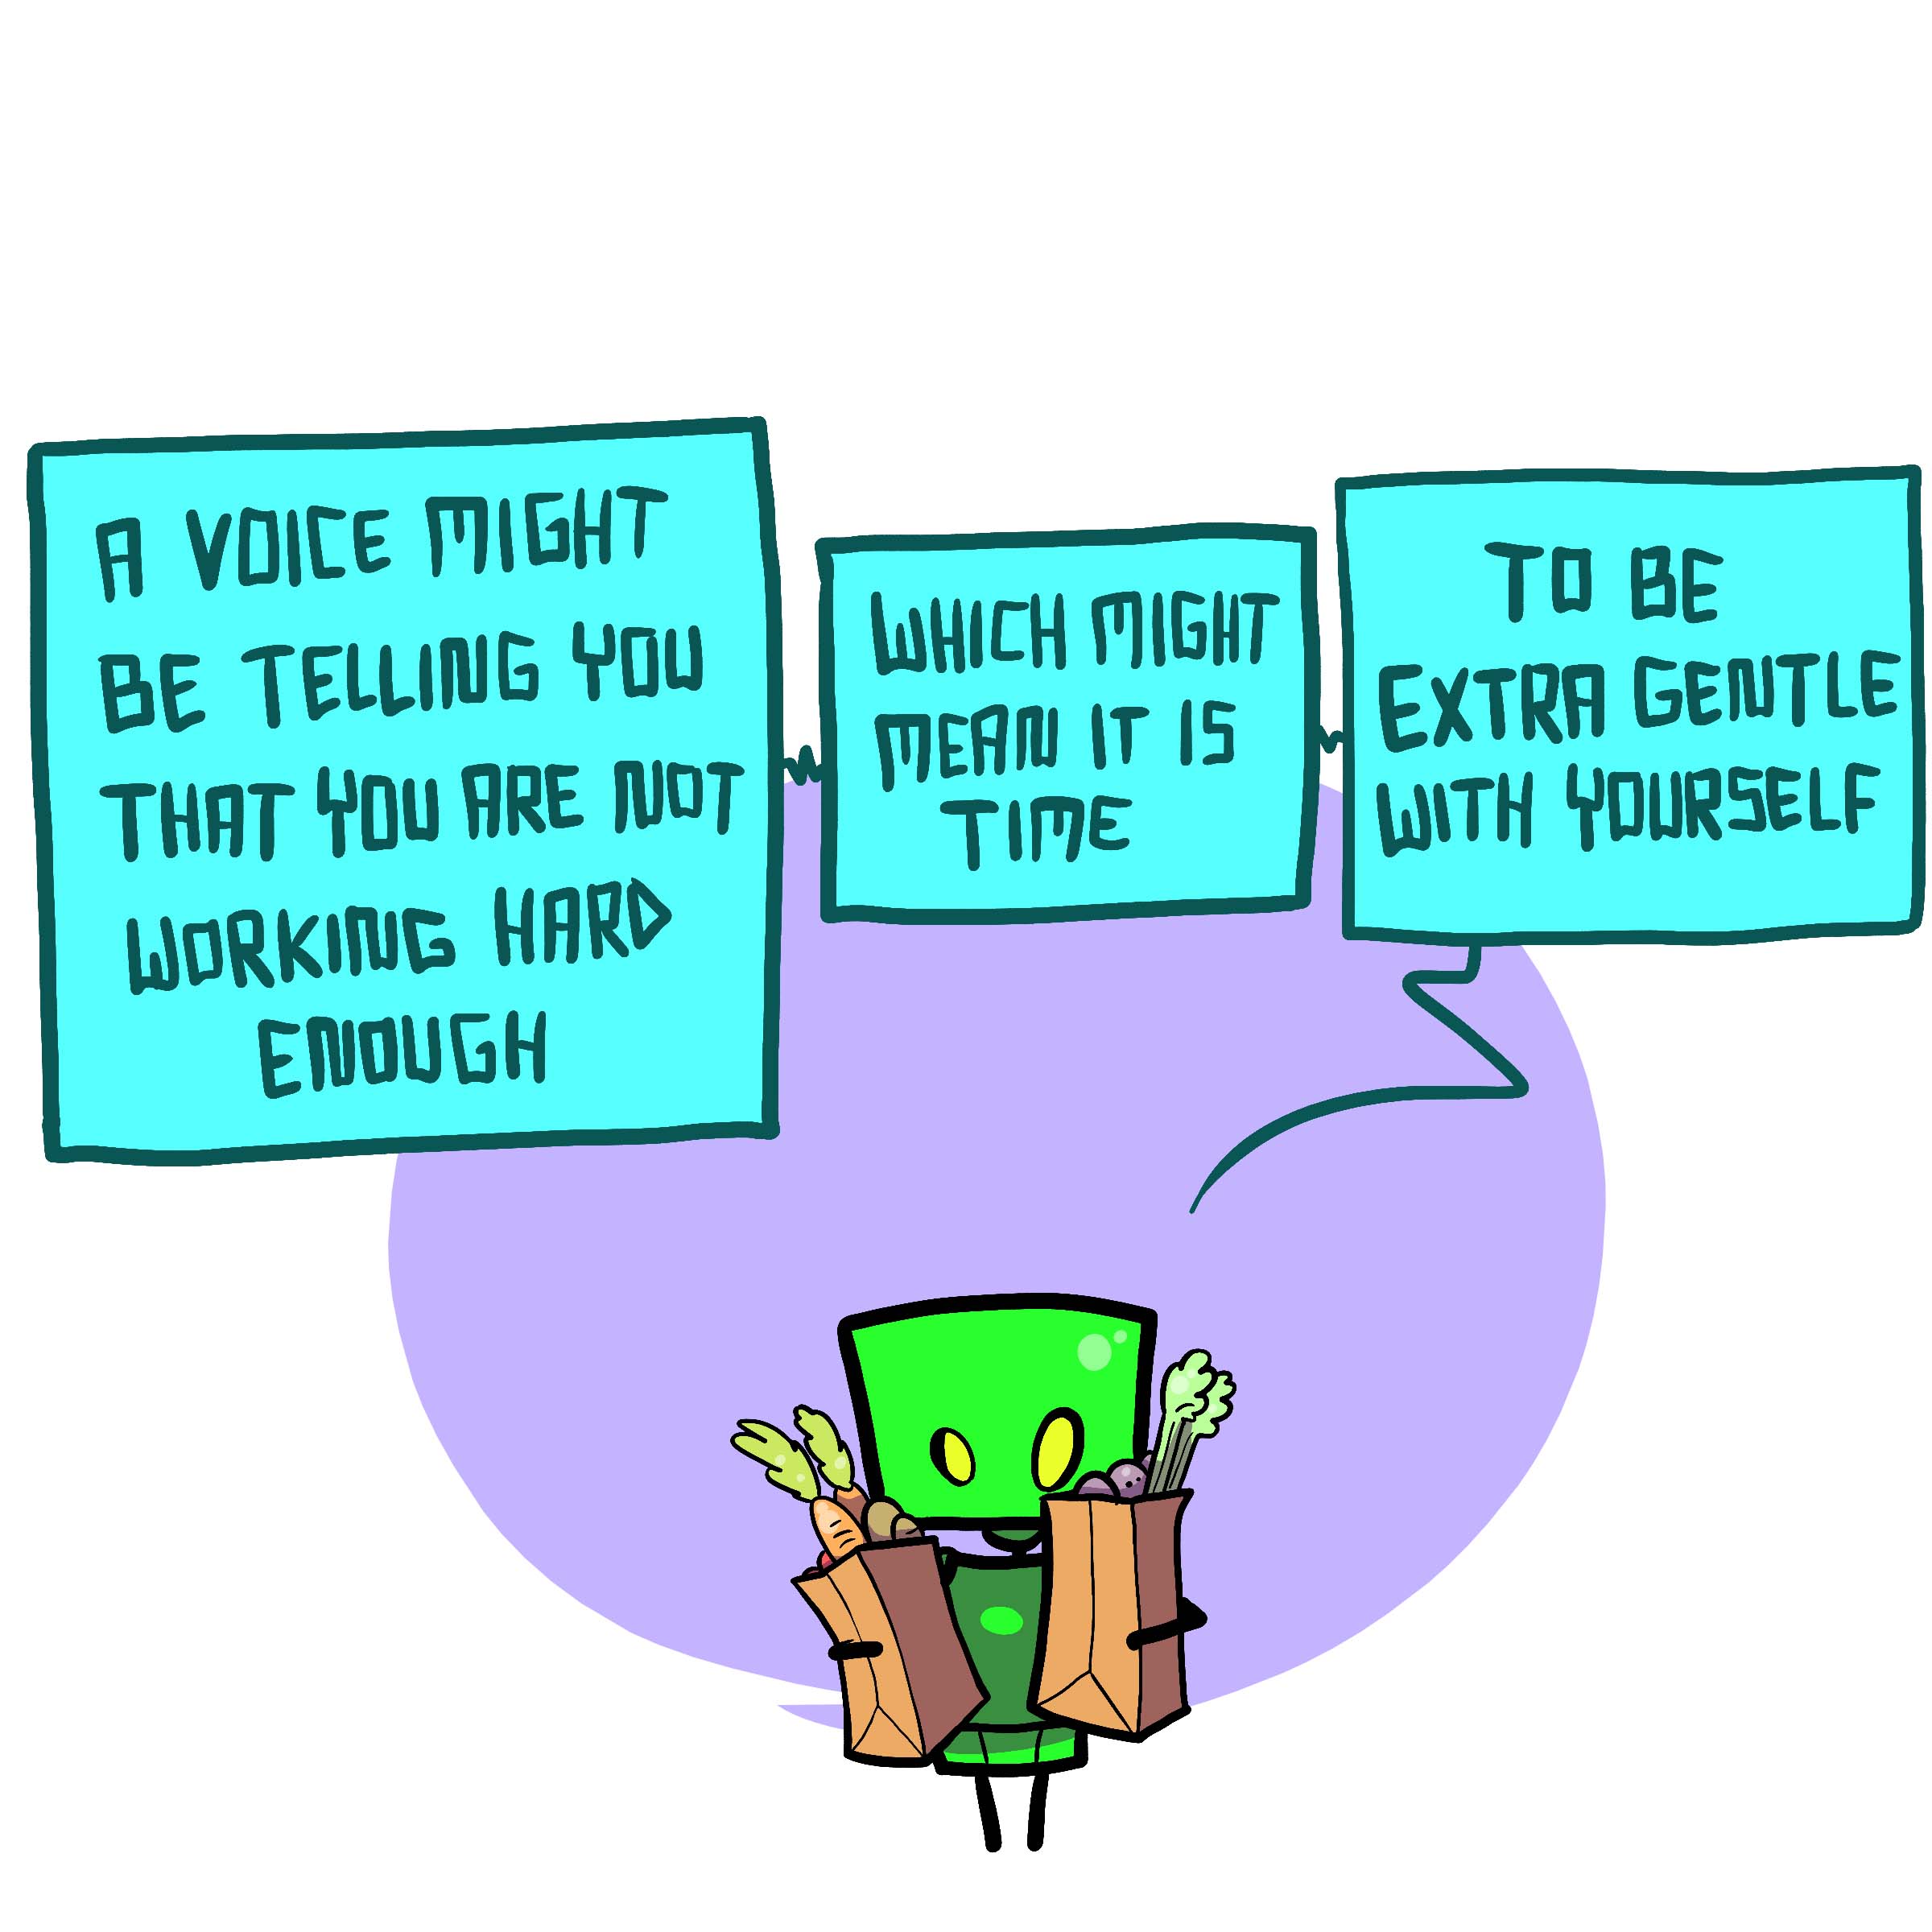 A VOICE MIGHT
BE TELLING YOU
THAT YOU ARE NOT
WORKING HARD
ENOUGH
WHICH MIGHT
MEAN IT IS
TIME
TO BE
EXTRA GENTLE
WITH YOURSELF